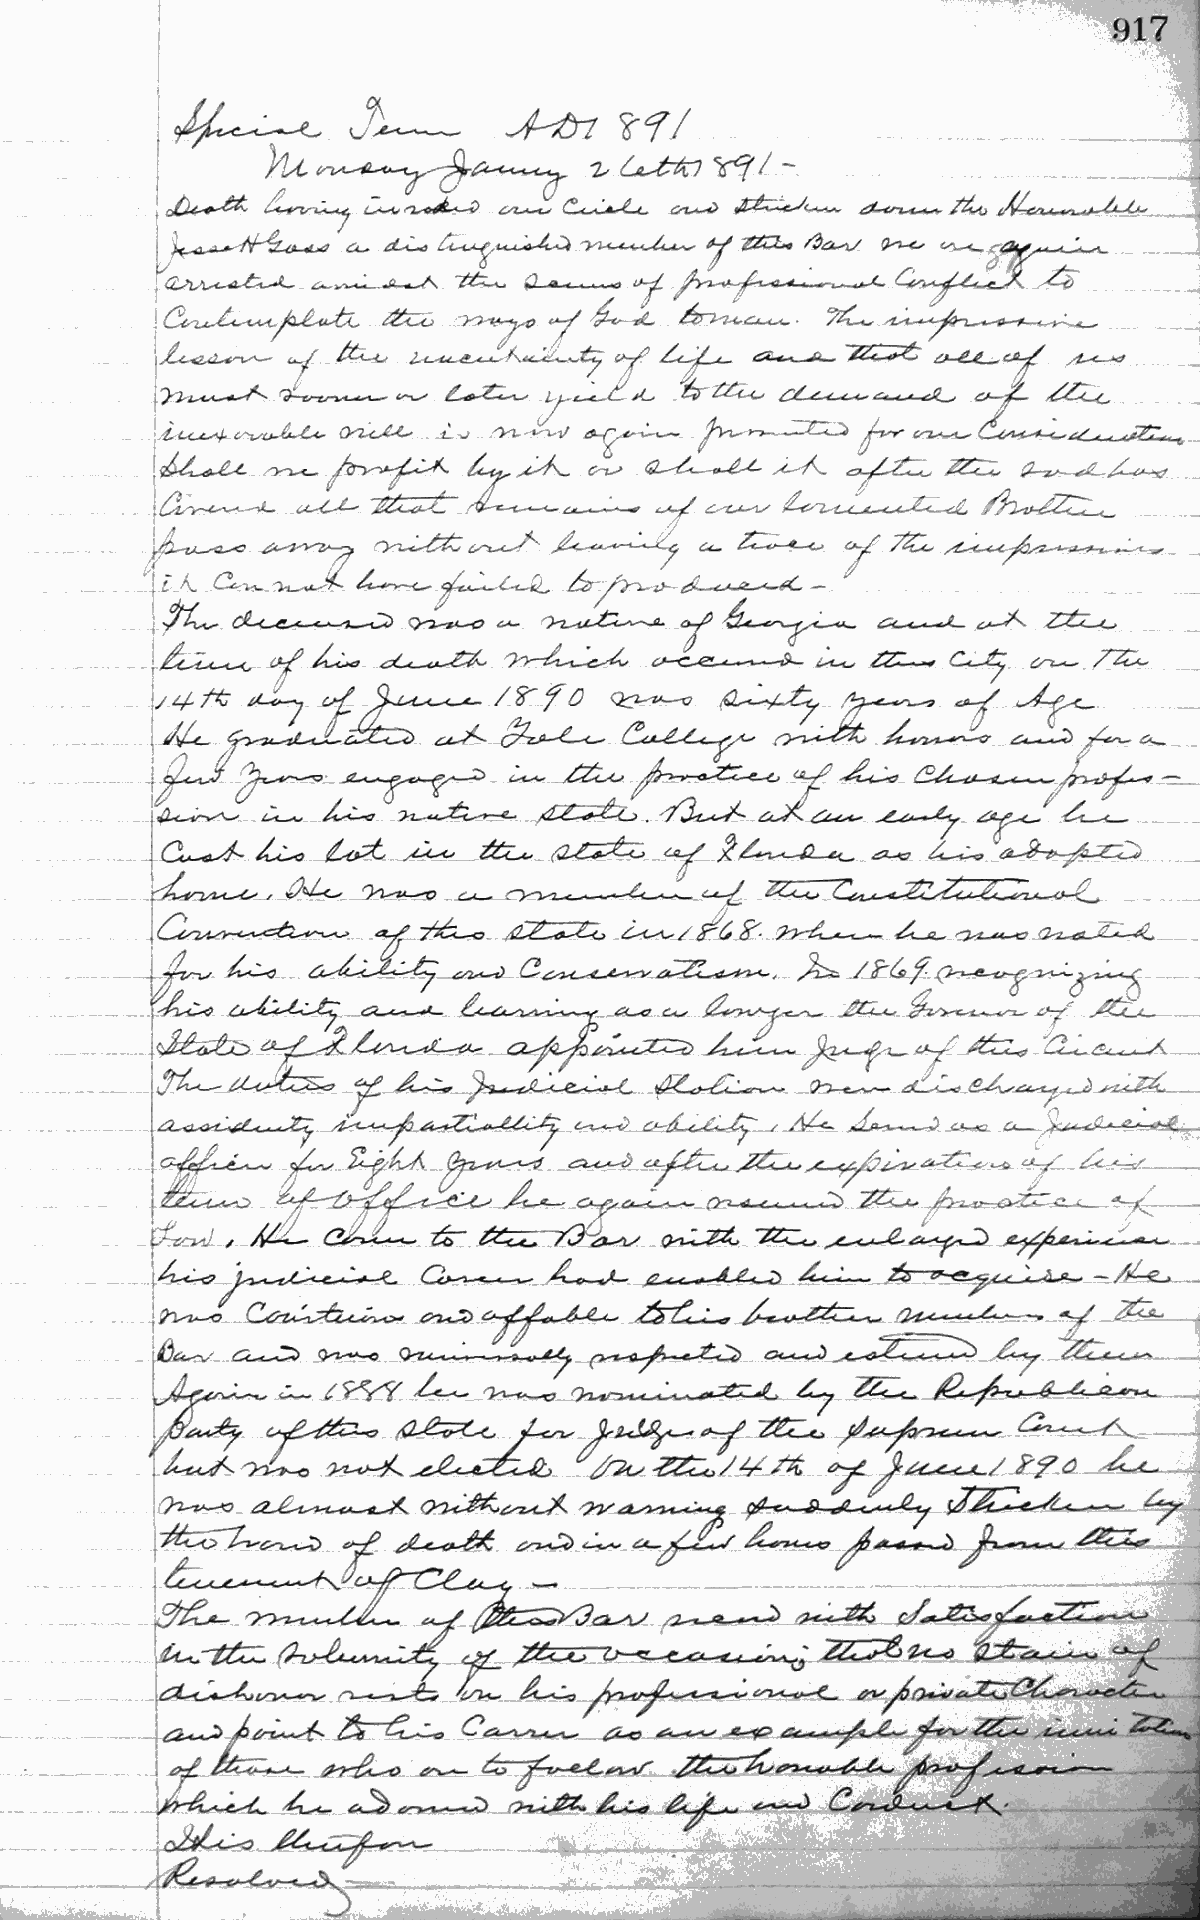 917
Special Term AD1891
Monday Janury 26th 1891-
Death having invaded our Circle and stricken down the Honorable
Jesse H Goss a distinguished member of this Bar we are again
arrested amidst the scenes of professional Conflict to
Contemplate the ways of God to man. The impressive
lesson of the uncertainty of life and that all of us
must sooner or later yield to the demand of the
inexorable will is now again presented for our Consideration
Shall we profit by it or shall it after the sod has
Covered all that remains of our lamented Brother
pass away without leaving a trace of the impressions
it Can not have failed to produced-
The deceased was a native of Georgia and at the
time of his death which occurred in this City on The
14th day of June 1890 was sixty years of Age
He graduated at Yale College with honors and for a
few Years engaged in the practice of his Chosen profes-
sion in his native state. But at an early age he
Cast his lot in the state of Florida as his adopted
home. He was a member of the Constitutional
Convention of this state in 1868. when he was noted
for his ability and Conservatism. In 1869. recognizing
his ability and learning as a lawyer the Governor of the
State of Florida appointed him Juge of this Circuit
The duties of his Judicial Station were discharged with
assiduity impartiallity and ability. He Served as a Judicial
officer for Eight Years and after the expiration of his
term of office he again resumed the practice of
Law. He came to the Bar with the enlarged experience
his judicial Career had enabled him to acquire - He
was Courteous and affable to his brother members of the
Bar and was universally respected and esteemed by them
Again in 1888 he was nominated by the Republican
Party of this State for Judge of the Supreme Court
but was not elected On the 14th of June 1890 he
was almost without warning suddenly Stricken by
the hand of death and in a few hours passed from this
tenement of Clay -
The member of this Bar with Satisfaction
in the solemnity of the occasion, that no stain of
dishonor rests on his professional or private Character
and point to his Carrer as an example for the imitation
of those who are to follow the honorable profession
which he adorned with his life and Conduct.
It is therefore
Resolved -